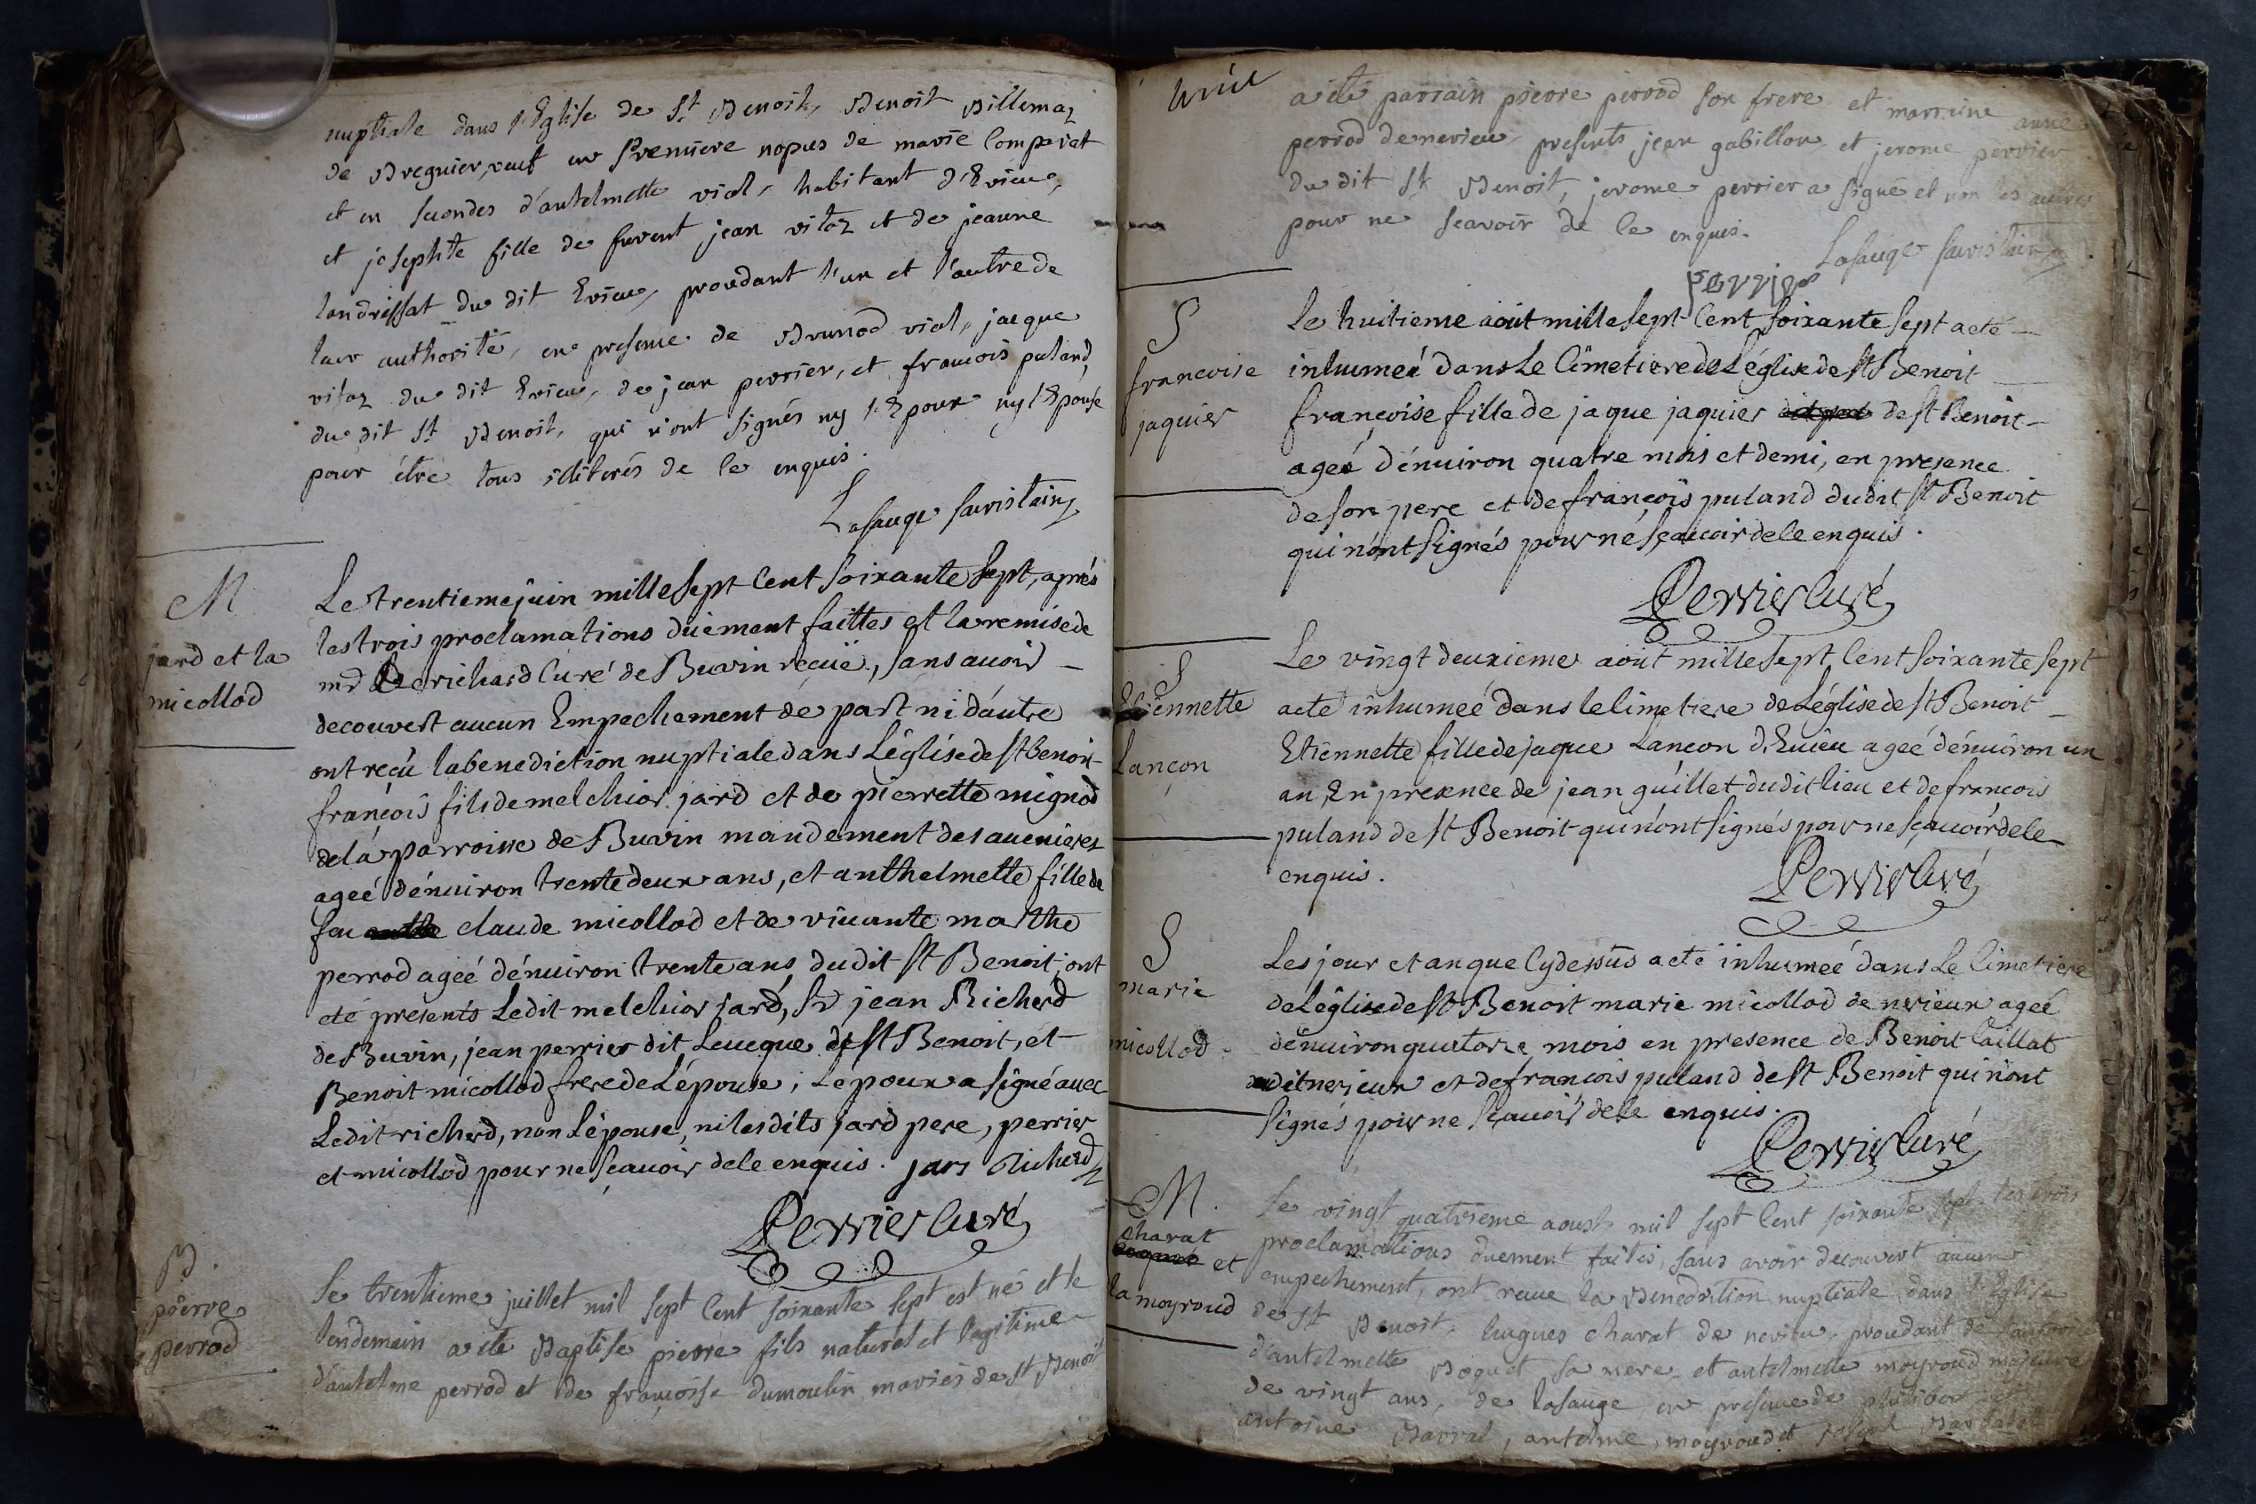 nuptiale dans l'Eglise de St Benoit, Benoit Billemaz
de Bregnier, veuf en Premiere nopces de marie Comparat
et en secondes d'antelmette vial, habitant d'Evieu,
et josephte fille de fuvent jean vitoz et de jeanne
landrissat du dit Evieu, procedant l'un et l'autre de
leur authorité, en presence de Brunod vial, jacque
vitoz du dit Evieu, de jean perrier, et francois puland,
du dit St Benoit, qui n'ont signés ny l'Epoux ny l'Epouse
pour être tous illiterés de le enquis.
Lasauge sacristain
M
jard et la
micollod
Le trentieme juin mille sept Cent soixante sept, aprés
les trois proclamations düement faittes et la remise de
mr richard Curé de Buvin reçüe, sans avoir
decouvert aucun Empechement de part ni d'autre
ont reçu la benediction nuptiale dans L'église de st benoit
françois fils de melchior jard et de pierrette mignod
de la parroisse de Buvin mandement des avenieres
ageé d'énviron trente deux ans, et anthelmette fille de
feu claude micollod et de vivante marthe
perrod ageé d'énviron trente ans du dit St Benoit; ont
eté presents Ledit melchior jard, Sr jean Richerd
de Buvin, jean perrier dit Leveque de St Benoit, et
Benoit micollod frere de L'épouse; Lépoux a signé avec
Ledit richerd, non Lépouse, ni les dits jard pere, perrier
et micollod pour ne sçavoir de le enquis. jars Richerd
Perrier Curé
B.
pierre
perrod
Le trentieme juillet mil sept Cent soixante sept est né et le
lendemain a eté Baptisé pierre fils naturel et legitime
d'antelme perrod et de françoise dumoulin mariés de St Benoit
a eté parrain pierre perrod son frere et marraine anne
perrod de nerieu presents jean gabillon et jerome perrier
du dit St Benoit, jerome perrier a signé et non les autres
pour ne scavoir de le enquis.
Lasauge sacristain
perrier
S
francoise
jaquier
Le huitieme août mille sept Cent soixante sept a eté
inhumeé dans Le Cimetiere de L'église de St Benoit
françoise fille de jaque jaquier de st Benoit
ageé d'énviron quatre mois et demi, en presence
de son pere et de françois puland du dit St Benoit
qui n'ont signés pour né sçavoir de le enquis.
Perrier Curé
S
Etiennette
Lançon
Le vingt deuxieme août mille sept Cent soixante sept
a eté inhumeé dans le Cimetiere de L'église de St Benoit
Etiennette fille de jaque Lançon d'Evieu ageé d'énviron un
an, En presence de jean guillet du dit lieu et de françois
puland de St Benoit qui n'ont signés pour ne sçavoir de le
enquis.
Perrier Curé
S
marie
micollod
Les jour et an que Cy dessus a eté inhumeé dans Le Cimetiere
de L'église de St Benoit marie micollod de nerieux ageé
d'énviron quatorze mois en presence de Benoit Caillat
du dit nerieux et de françois puland de St Benoit qui n'ont
signés pour ne sçavoir de le enquis.
Perrier Curé
M.
Charat
et
la moyroud
Le vingt quatrieme aoust mil sept Cent soixante sept les trois
proclamations duement faites, sans avoir decouvert aucun
empechement, ont recue la Benediction nuptiale dans l'Eglise
de St Benoit, hugues charat de nerieu, procedant de l'autorité
d'antelmette Boguet sa mere et antelmette moyroud majeure
de vingt ans, de lasauge en presence de
antoine Barral, antelme moyroud et joseph